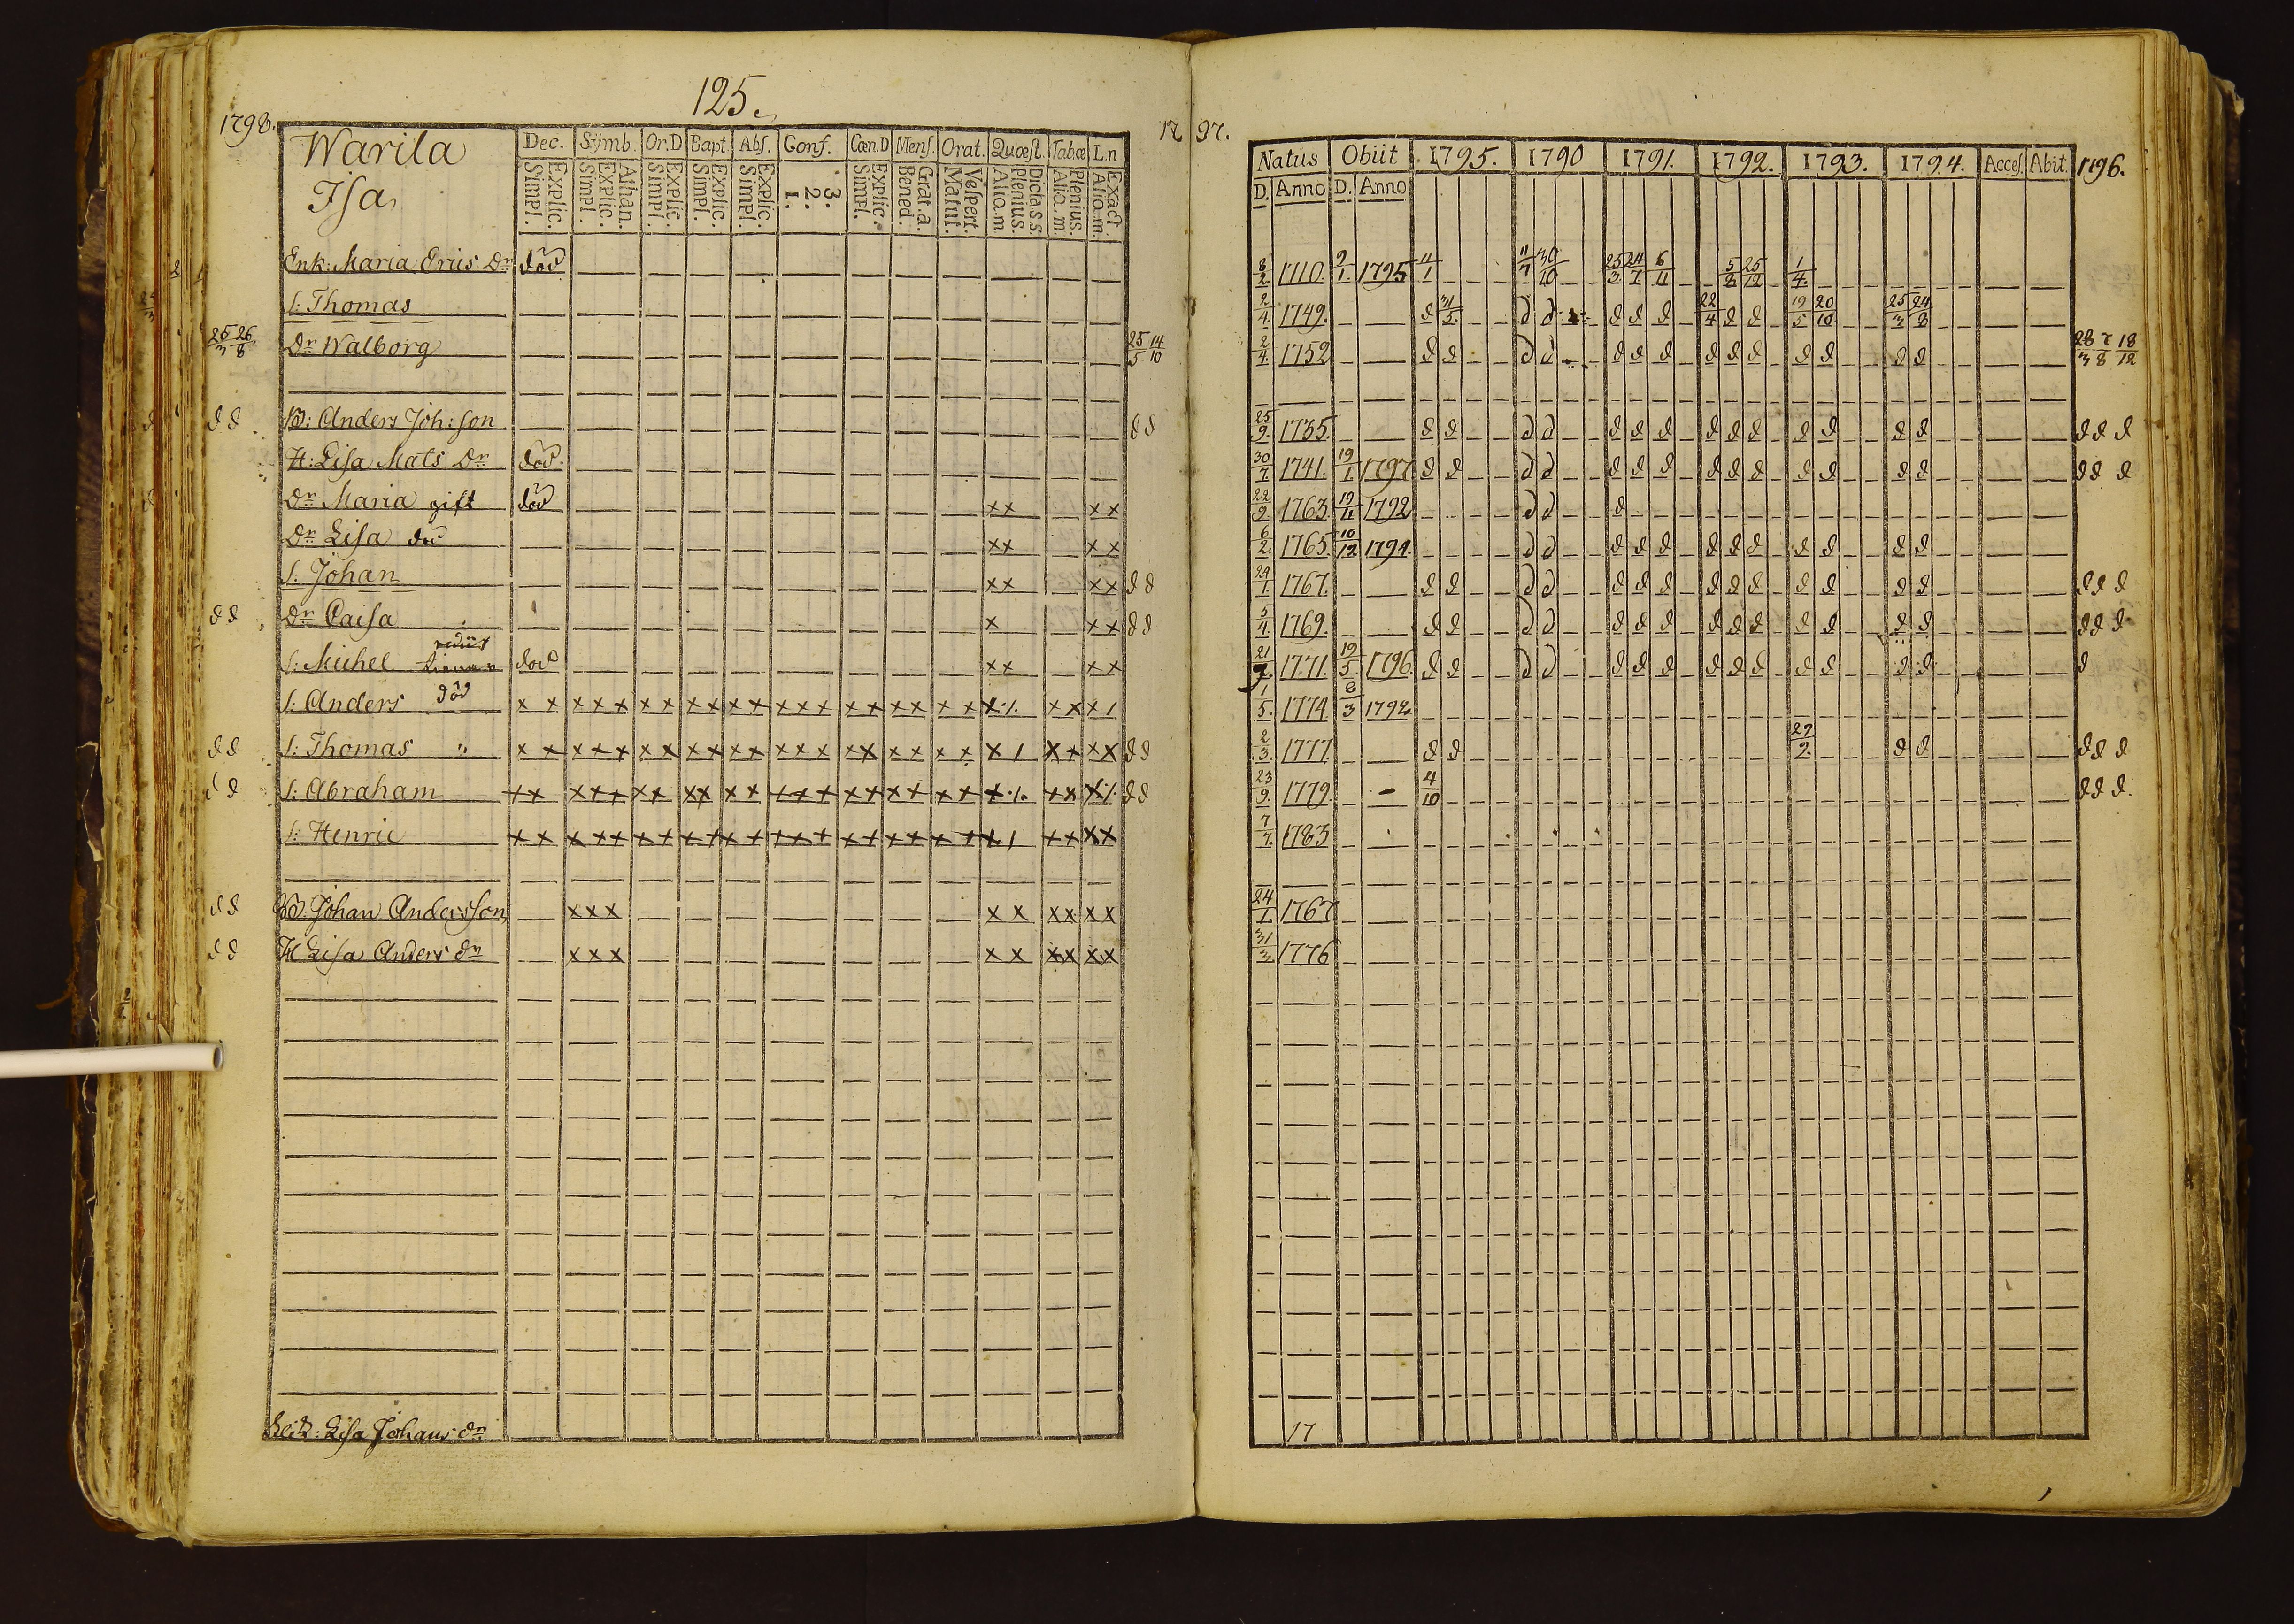 125.
1798.
17 97.
Warila
Isa
Dec. Sÿmb. Or.D Bapt. Abs. Conf. Cœn.D Mens. Orat. Quæst. Tabœ L.n
Explic. Simpl. Athan. Explic. Simpl. Explic. Simpl. Explic. Simpl. Explic. Simpl. 3. 2. 1. Explic. Simpl. Grat.a. Bened. Vespert. Matut. Dicta.s.s. Plenius. Aliq.m Plenius. Aliq.m. Exact. Aliq.m.
Natus Obiit 1795. 1790 1791. 1792. 1793. 1794. Acces. Abit. 1796.
D. Anno D. Anno
Enk: Maria Erics Dr död 8/2. 1710. 9/1 1795 11/1 11/7 30/10 25/3 24/7 6/11 5/8 25/12 1/4.
S: Thomas 2/4. 1749. d 31/5. d d d d d 22/4 d d 19/5 20/10 25/3 24/8
25/3 26/8 Dr Walborg 25/5 14/10 2/4. 1752 d d d d d d d d d d d d d d 28/3 7/8 18/12
d d B: Anders Joh:son d d 25/9. 1735. d d d d d d d d d d d d d d d d d
H: Lisa Mats Dr död 30/7. 1741. 19/1. 1797. d d d d d d d d d d d d d d d d d
Dr Maria gift död xx xx 22/9 1763. 19/11 1792 d d d
Dr Lisa död xx xx 6/2. 1765. 10/12 1794. d d d d d d d d d d d d
S: Johan xx xx d d 24/1. 1767. d d d d d d d d d d d d d d d d d
d d Dr Caisa x xx d d 5/4. 1769. d d d d d d d d d d d d d d d d d
rediit
S: Michel död xx xx 21/9 1771. 19/5. 1796. d d d d d d d d d d d d d d d
S: Anders död x x x x x x x x x x x x x x x x x x x x x x ·/. x x x / 1/5. 1774. 6/3 1792
d d S: Thomas " x x x x x x x x x x x x x x x x x x x x x x / x x x x d d 2/3. 1777. d d 29/2. d d d d d
d d S: Abraham x x x x x x x x x x x x x x x x x x x x x x ·/. x x x ·/. d d 23/9. 1779. 4/10 d d d.
S: Henric x x x x x x x x x x x x x x x x x x x x x x / x x x x 7/7. 1783
d d B: Johan Andersson xxx x x xx xx 24/1. 1767
d d H Lisa Anders dr xxx x x xx xx 31/3. 1776
Lisa Johans dr 17